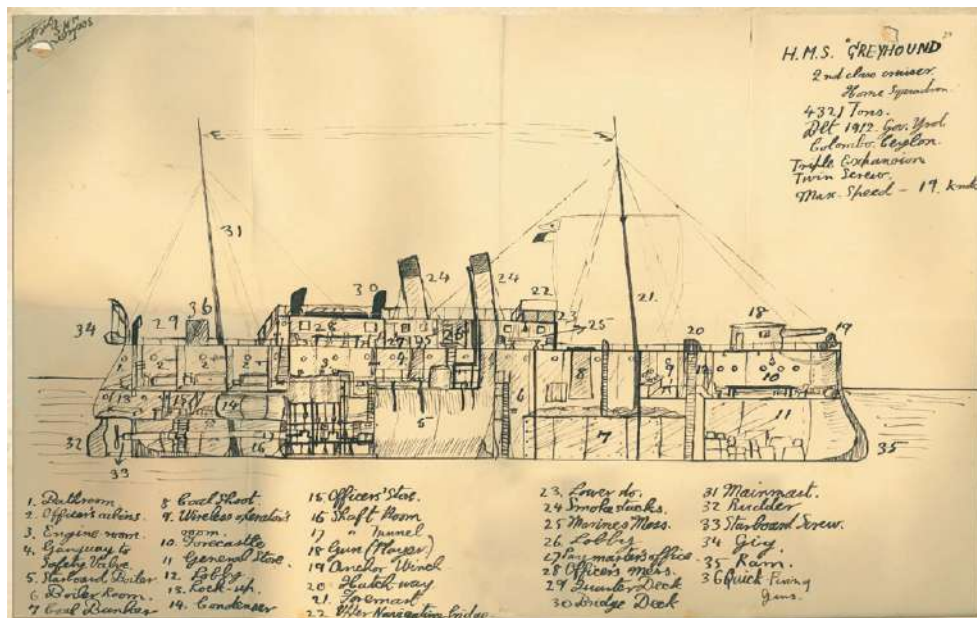 H.M.S. "GREYHOUND"
2nd class cruiser.
Home Squadron.
4321 Tons.
Blt 1912. Gov. Yrd
Colombo. Ceylon.
Triple Expansion
Twin Screw.
Max. Speed - 19. knots
31
30
24
24
22
21.
23
25
18
19
20
36
29
34
28
26
27
4
3
2
2
2
1
13
14
15
16
5
6
7
8
9
12
10
11
32
33
35
1. Bathroom
2. Officer's cabins.
3. Engine room.
4. Gangway to
Safety Valve
5. Starboard Boiler
6 Boiler Room.
7 Coal Bunker
8 Coal Shoot
9. Wireless operator's
room.
10. Forecastle
11 General Store.
12. Lobby
13. Lock-up.
14. Condenser
15 Officers' Store.
16 Shaft Room
17 " Tunnel
18 Gun (Player)
19 Anchor Winch
20 Hatch-way
21. Foremast
22 Upper Navigating Bridge.
23. Lower do.
24 Smoke Stacks.
25 Marines Mess.
26. Lobby
27 Paymaster's office
28 Officer's Mess.
29 Quarter Deck
30 Bridge Deck
31 Mainmast.
32 Rudder
33 Starboard Screw.
34 Gig
35 Ram.
36 Quick Firing
Guns.